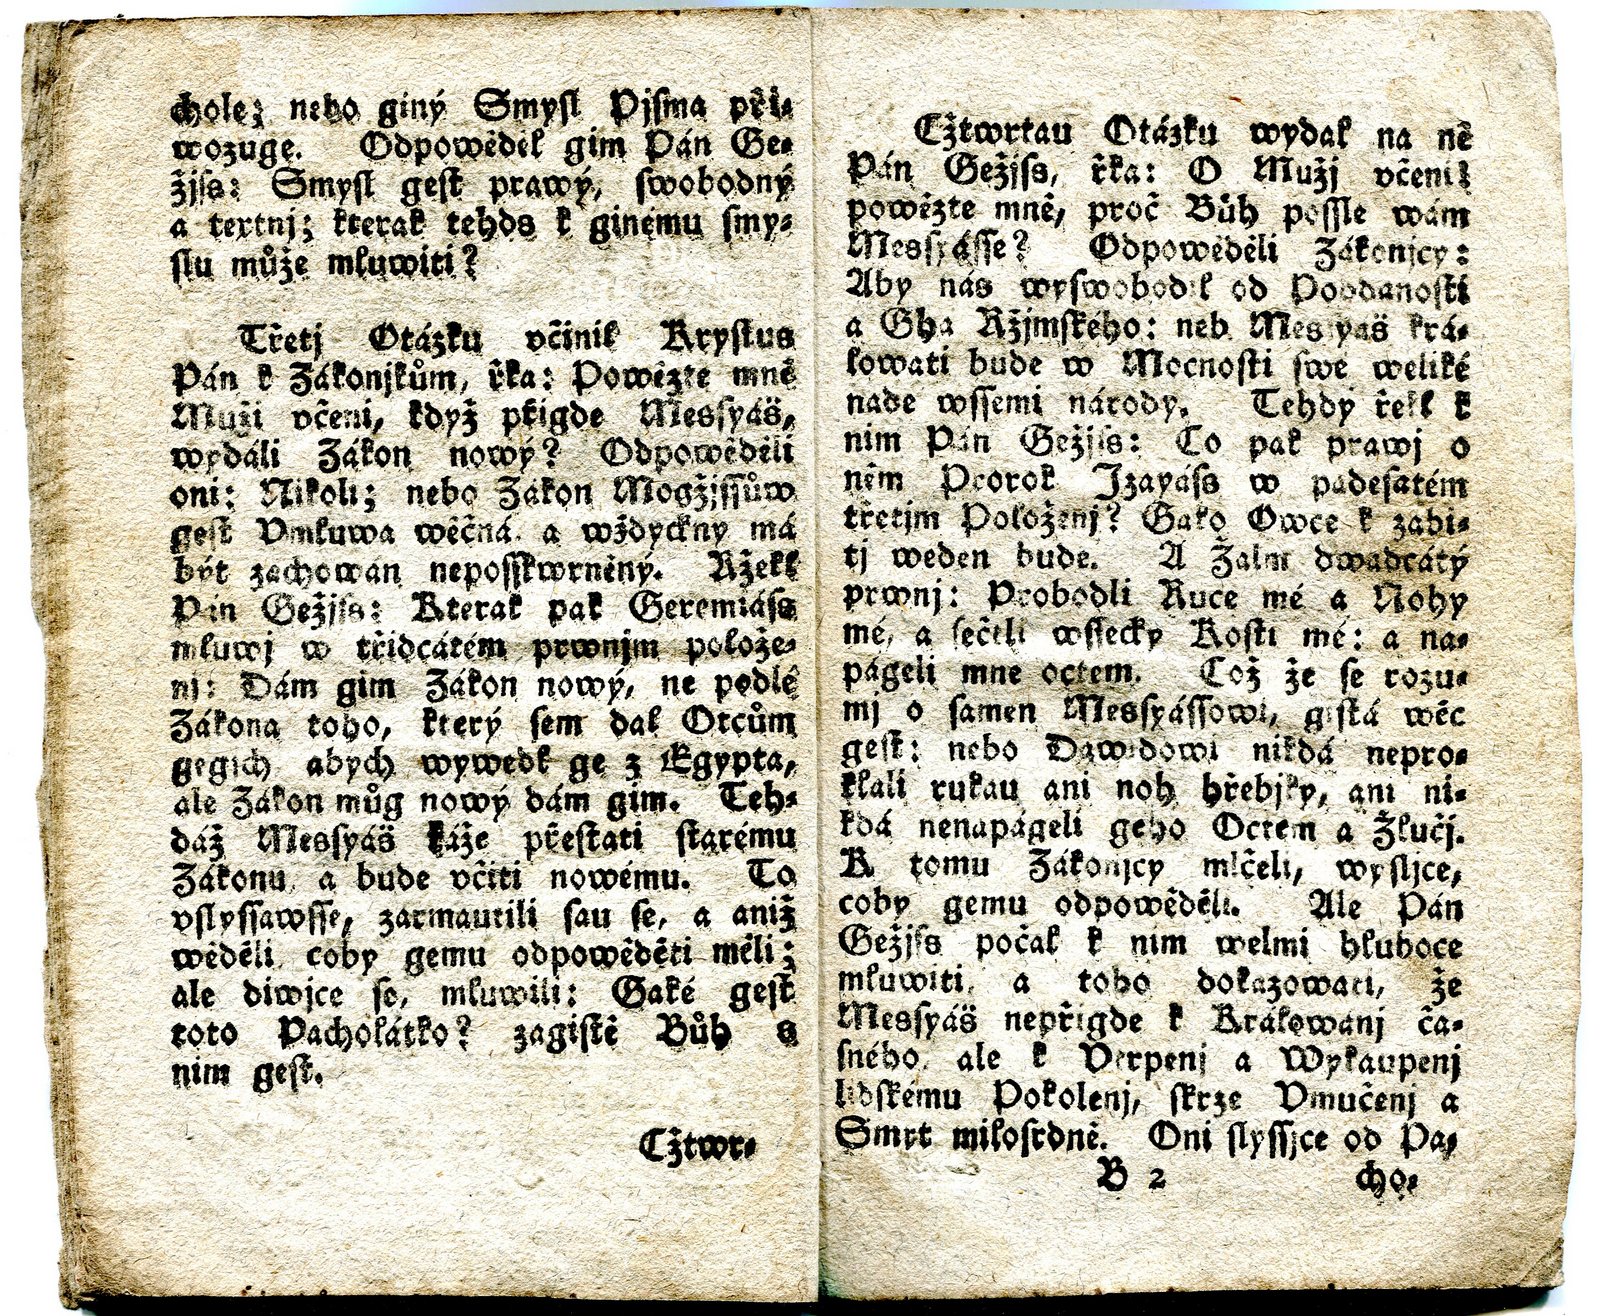 chole; nebo giný Smysl Pjsma při-
wozuge. Odpowěděl gim Pán Ge-
žjss: Smysl gest prawý, swobodný
a textnj; kterak tehds k ginému smy-
slu může mluwiti?
Třetj Otázku včinil Krystus
Pán k Zákonjkům, řka: Powězte mně
Muži včeni, když přigde Messyáš,
wydáli Zákon nowý? Odpowěděli
oni: Nikoli; nebo Zákon Mogžjssůw
gest Vmluwa wěčná a wždyckny má
být zachowán neposskwrněný. Ržekl
Pán Gežjss: Kterak pak Geremiáss
mluwj w třidcátém prwnjm polože-
nj: Dám gim Zákon nowý, ne podlé
Zákona toho, který sem dal Otcům
gegich abych wywedl ge z Egypta,
ale Zákon můg nowý dám gim. Teh-
dáž Messyáš káže přestati starému
Zákonu a bude včiti nowému. To
vslyssawsse, zarmautili sau se, a aniž
wěděli coby gemu odpowěděti měli;
ale diwjce se, mluwili: Gaké gest
toto Pacholátko? zagistě Bůh s
nim gest.
Cžtwr-
Cžtwrtau Otázku wydal na ně
Pán Gežjss, řka: O Mužj včeni!
powězte mně, proč Bůh possle wám
Messyásse? Odpowěděli Zákonjcy:
Aby nás wyswobodil od Poddanosti
a Gha Ržjmského: neb Messyáš krá-
lowati bude w Mocnosti swé weliké
nade wssemi národy. Tehdy řekl k
nim Pán Gežjss: Co pak prawj o
něm Prorok Izayáss w padesatém
třetjm Položenj? Gako Owce k zabi-
tj weden bude. A Žalm dwadcátý
prwnj: Probodli Ruce mé a Nohy
mé, a sečtli wssecky Kosti mé: a na-
págeli mne octem. Což že se rozu-
mj o samen Messyássowi, gistá wěc
gest: nebo Dawidowi nikdá nepro-
klali rukau ani noh hřebjky, ani ni-
kdá nenapágeli geho Octem a Žlučj.
K tomu Zákonjcy mlčeli, wysljce,
coby gemu odpowěděli. Ale Pán
Gežjss počal k nim welmi hluboce
mluwiti a toho dokazowati, že
Messyáš nepřigde k Králowanj ča-
sného, ale k Vtrpenj a Wykaupenj
lidskému Pokolenj, skrze Vmučenj a
Smrt milosrdně. Oni slyssjce od Pa-
B 2 cho-